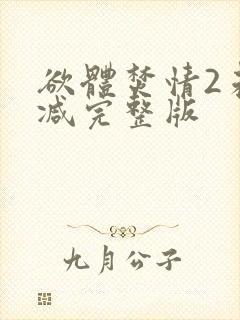 欲體焚情2未
减完整版
九月公子